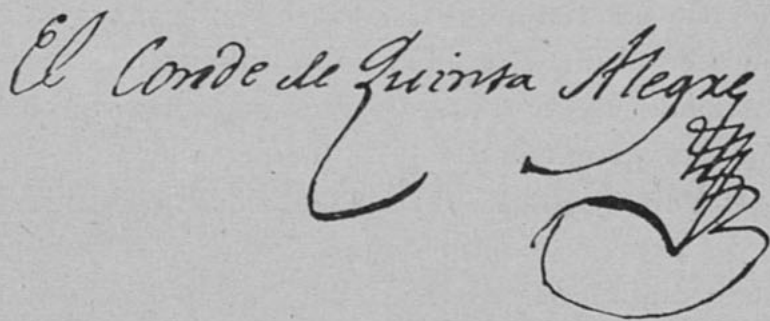 El Conde de Quinta Alegre